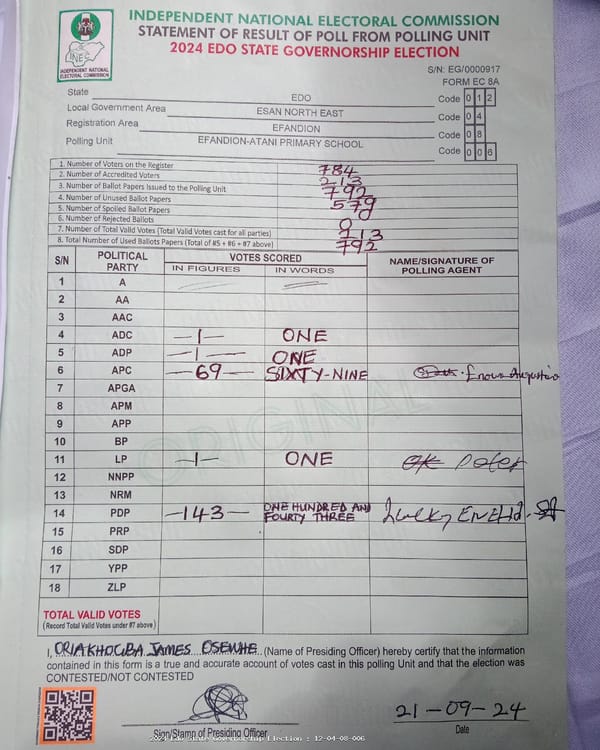 INDEPENDENT NATIONAL ELECTORAL COMMISSION
STATEMENT OF RESULT OF POLL FROM POLLING UNIT
2024 EDO STATE GOVERNORSHIP ELECTION
INEC
INDEPENDENT NATIONAL
ELECTORAL COMMISSION
S/N: EG/0000917
FORM EC 8A
State EDO Code 0 1 2
Local Government Area ESAN NORTH EAST Code 0 4
Registration Area EFANDION Code 0 8
Polling Unit EFANDION-ATANI PRIMARY SCHOOL Code 0 0 6
1. Number of Voters on the Register 784
2. Number of Accredited Voters 213
3. Number of Ballot Papers Issued to the Polling Unit 792
4. Number of Unused Ballot Papers 579
5. Number of Spoiled Ballot Papers
6. Number of Rejected Ballots 0
7. Number of Total Valid Votes (Total Valid Votes cast for all parties) 213
8. Total Number of Used Ballots Papers (Total of #5 + #6 + #7 above) 792
S/N POLITICAL PARTY VOTES SCORED NAME/SIGNATURE OF POLLING AGENT
IN FIGURES IN WORDS
1 A
2 AA
3 AAC
4 ADC -1- ONE
5 ADP -1- ONE
6 APC -69- SIXTY-NINE
7 APGA
8 APM
9 APP
10 BP
11 LP -1- ONE Peter
12 NNPP
13 NRM
14 PDP -143- ONE HUNDRED AND FOURTY THREE Lucky
15 PRP
16 SDP
17 YPP
18 ZLP
ORIGINAL
TOTAL VALID VOTES
(Record Total Valid Votes under #7 above)
I, ORIAKHOGBA JAMES OSEWHE (Name of Presiding Officer) hereby certify that the information
contained in this form is a true and accurate account of votes cast in this polling Unit and that the election was
CONTESTED/NOT CONTESTED
21-09-24
Sign/Stamp of Presiding Officer Date
2024 Edo State Governorship Election : 12-04-08-006